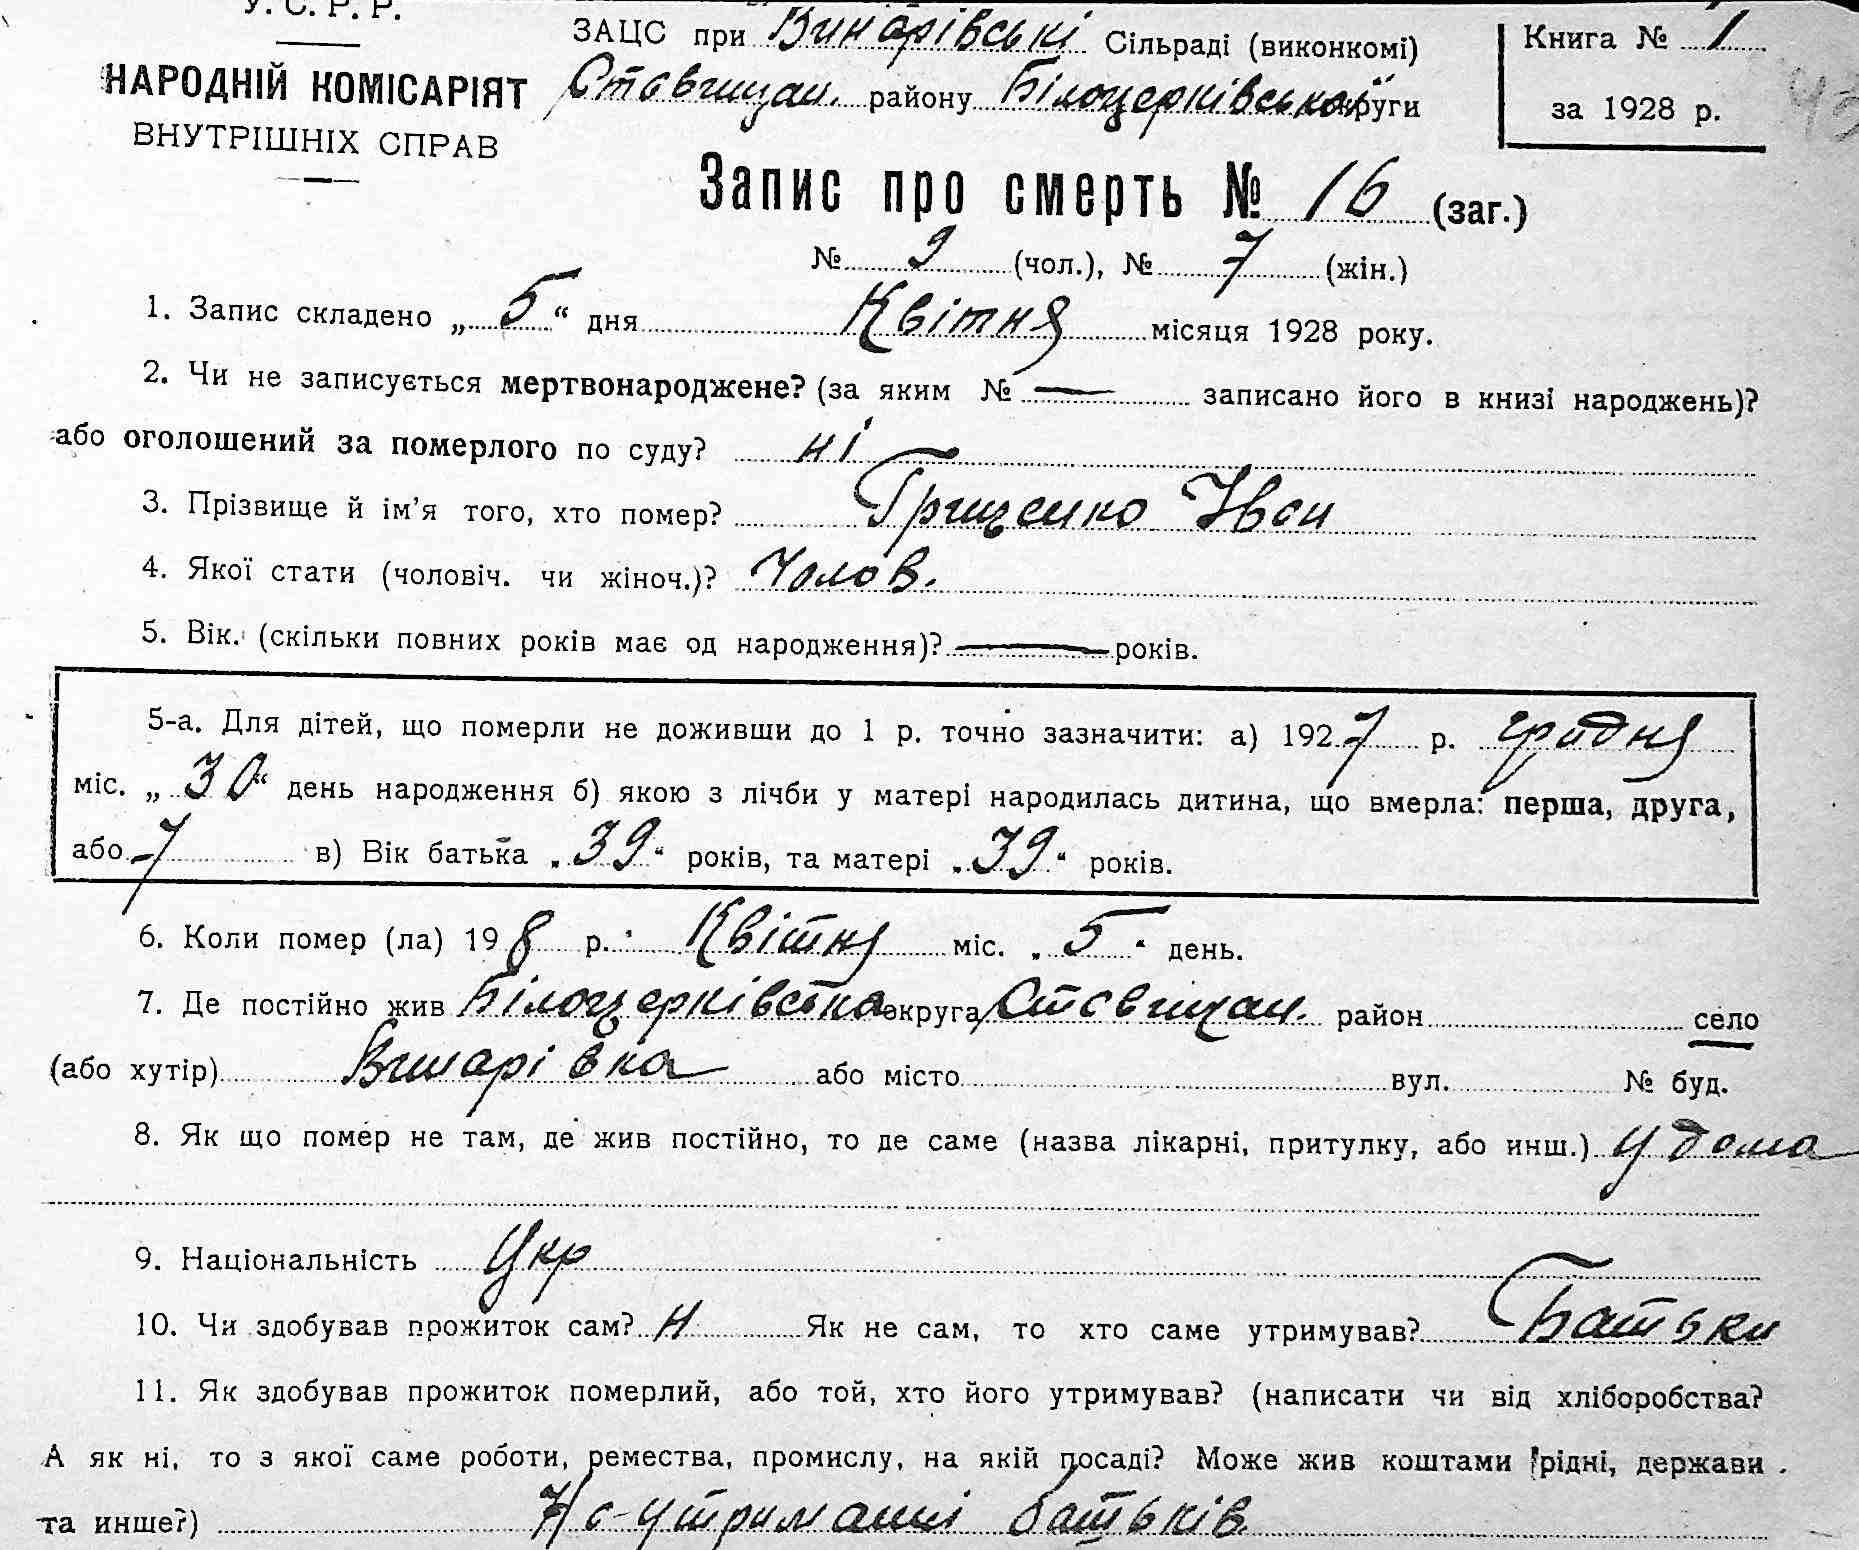 У.С.Р.Р.
НАРОДНІЙ КОМІСАРІЯТ
ВНУТРІШНІХ СПРАВ
ЗАЦС при Винарівські Сільраді (виконкомі)
Ставищан. району Білоцерківської округи
Книга № 1
за 1928 р.
Запис про смерть № 16 (заг.)
№ 9 (чол.), № 7 (жін.)
1. Запис складено „5“ дня Квітня місяця 1928 року.
2. Чи не записується мертвонароджене? (за яким № — записано його в книзі народжень)?
або оголошений за померлого по суду? ні
3. Прізвище й ім'я того, хто помер? Грищенко Іван
4. Якої стати (чоловіч. чи жіноч.)? Чолов.
5. Вік. (скільки повних років має од народження)? — років.
5-а. Для дітей, що померли не доживши до 1 р. точно зазначити: а) 1927 р. грудня
міс. „30“ день народження б) якою з лічби у матері народилась дитина, що вмерла: перша, друга,
або 7 в) Вік батька „39“ років, та матері „39“ років.
6. Коли помер (ла) 198 р. Квітня міс. „5“ день.
7. Де постійно жив Білоцерківська округа Ставищан. район село
(або хутір) Винарівка або місто вул. № буд.
8. Як що помер не там, де жив постійно, то де саме (назва лікарні, притулку, або инш.) у дома
9. Національність Укр
10. Чи здобував прожиток сам? н Як не сам, то хто саме утримував? Батьки
11. Як здобував прожиток померлий, або той, хто його утримував? (написати чи від хліборобства?
А як ні, то з якої саме роботи, ремества, промислу, на якій посаді? Може жив коштами рідні, держави
та инше?) утриманні батьків